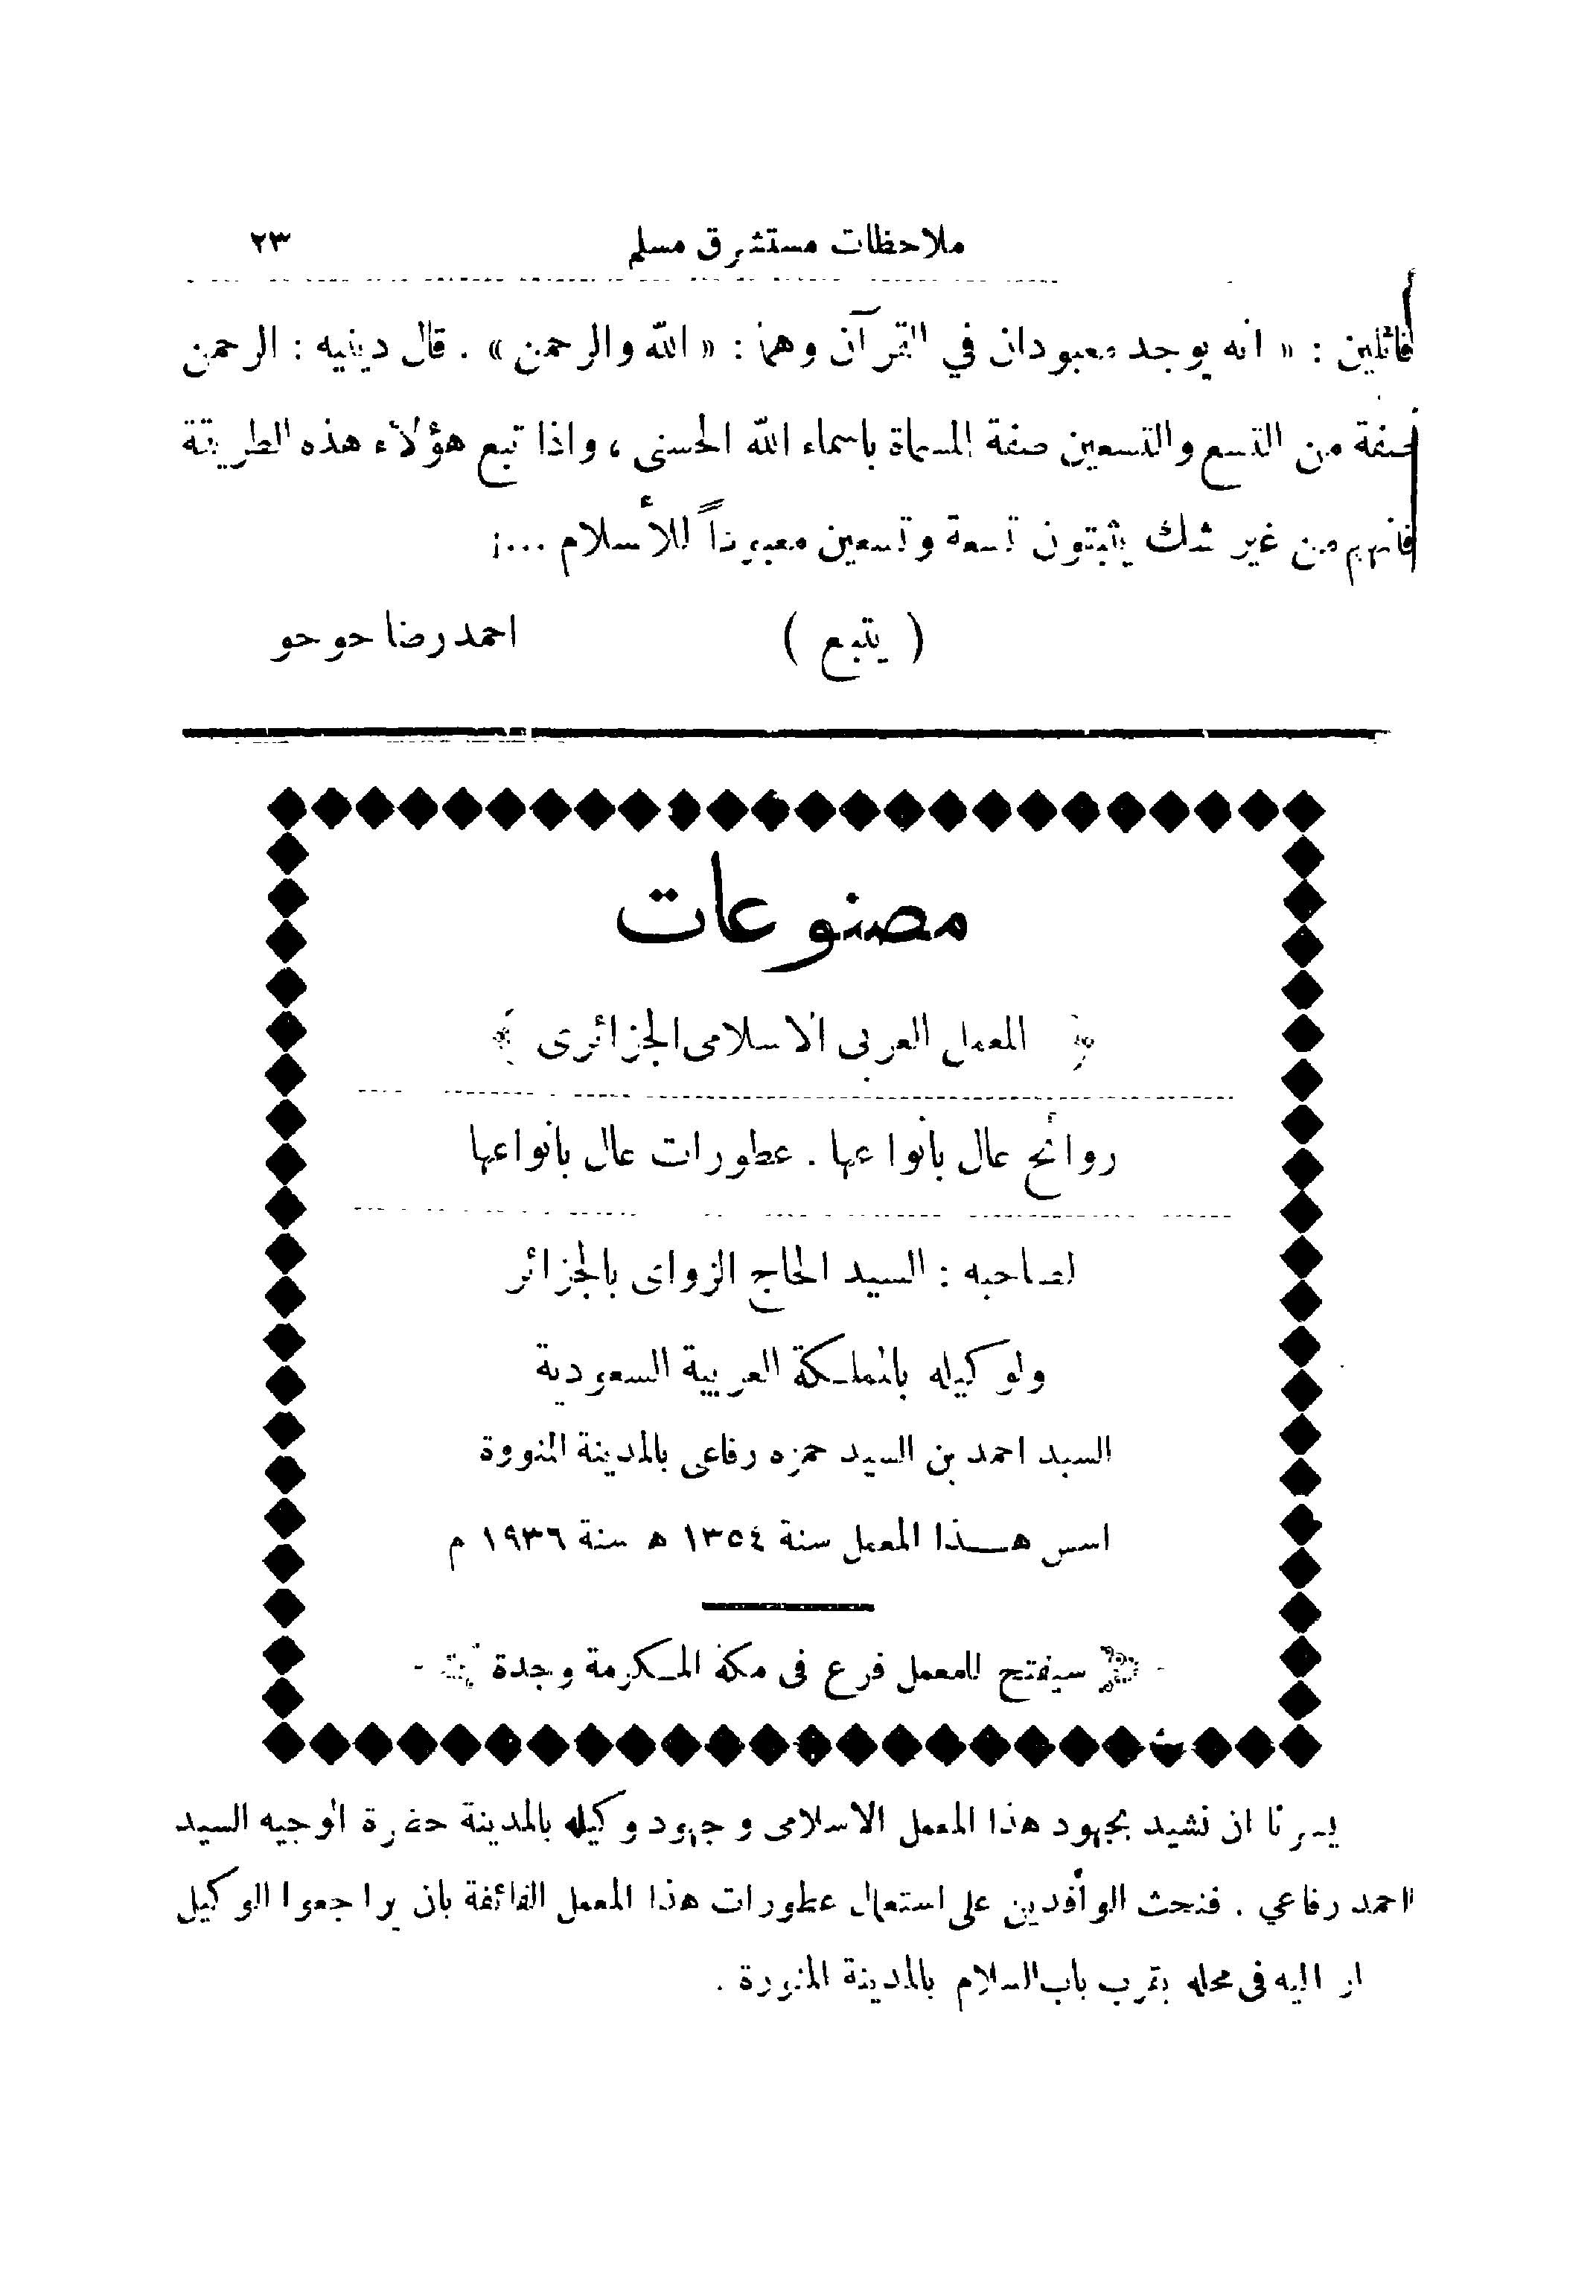 ملاحظات مستشرق مسلم ٢٣
قائلين : « انه يوجد معبودان في القرآن وهما : « الله والرحمن » . قال دينيه : الرحمن
صفة من التسع والتسعين صفة المسماة باسماء الله الحسنى ، واذا تبع هؤلاء هذه الطريقة
فانهم من غير شك يثبتون تسعة وتسعين معبوداً للأسلام ...
( يتبع ) احمد رضا حوحو
مصنوعات
المعمل العربى الاسلامى الجزائرى
روائح عال بأنواعها . عطورات عال بأنواعها
لصاحبه : السيد الحاج الزواى بالجزائر
ولوكيله بالمملكة العربية السعودية
السيد احمد بن السيد حمزه رفاعى بالمدينة المنورة
اسس هـذا المعمل سنة ١٣٥٤ ه سنة ١٩٣٦ م
سيفتح للمعمل فرع فى مكة المكرمة وجدة
يسرنا ان نشيد بجهود هذا المعمل الاسلامى وجهود وكيله بالمدينة حضرة الوجيه السيد
احمد رفاعي . فنحث الوافدين على استعمال عطورات هذا المعمل الفائقة بان يراجعوا الوكيل
ار اليه فى محله بقرب باب السلام بالمدينة المنورة .